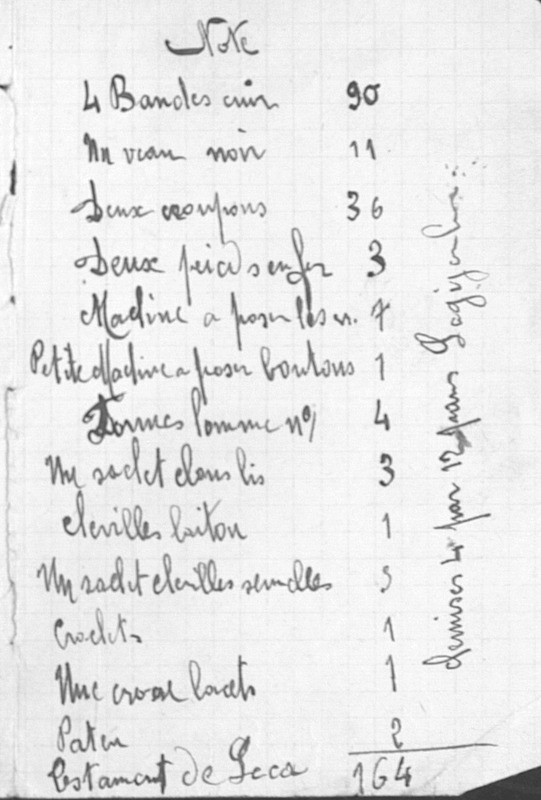 Note
4 Bandes cuir 90
Un veau noir 11
Deux croupons 36
Deux pieds en fer 3
Machine a poser les 7
Petite Machine a poser boutons 1
Formes homme no 4
Un sachet clous lis 3
chevilles laiton 1
Un sachet chevilles semelles 3
Crochets 1
Une lacets 1
Paten 2
testament de Leca 164
Remises 4 par 12